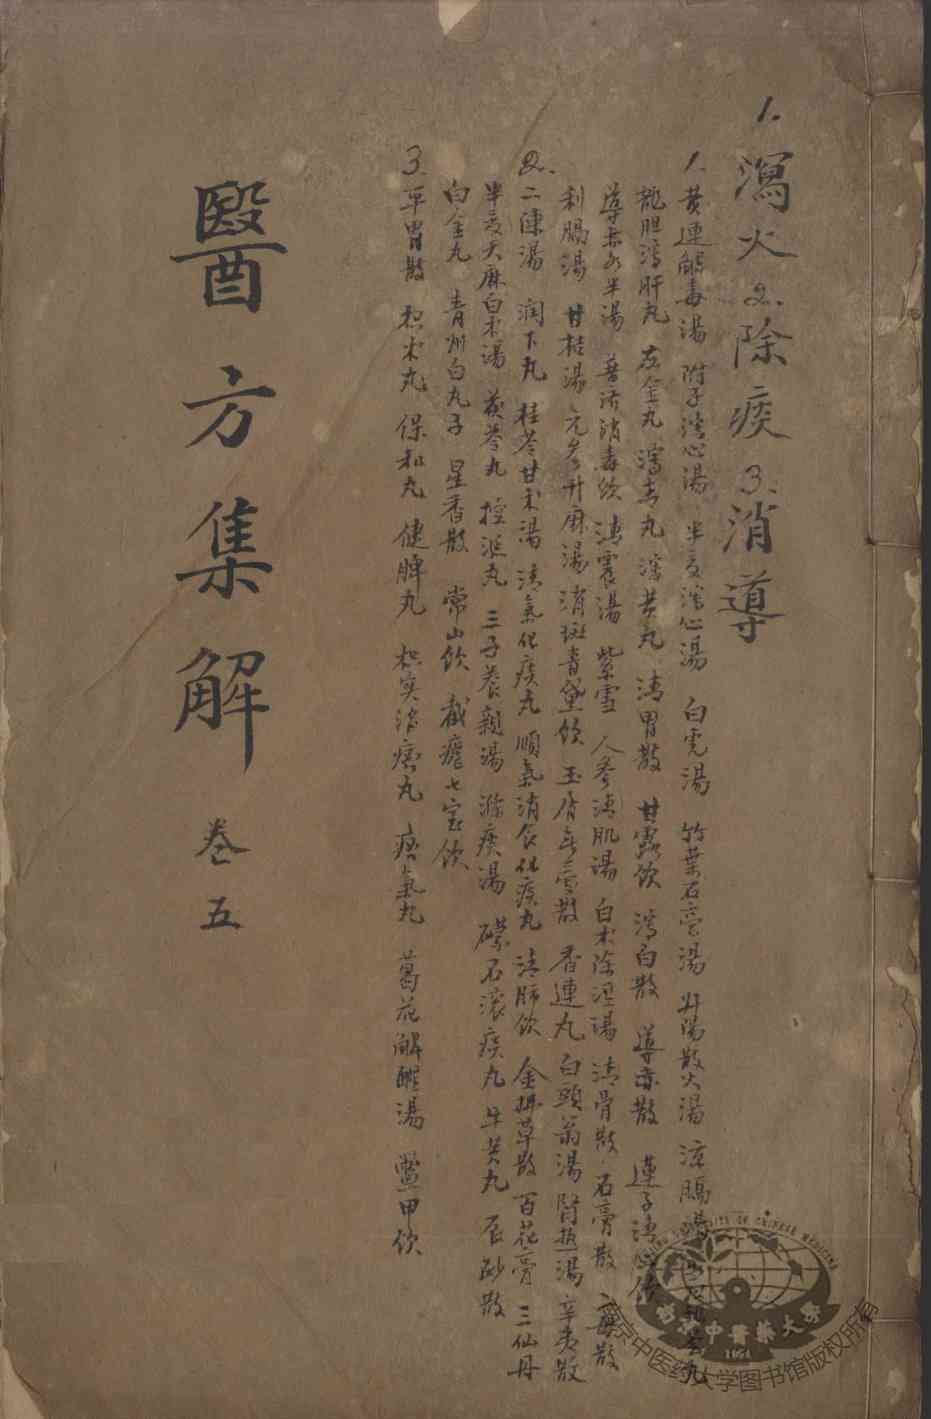 1. 瀉火 2. 除痰 3. 消導
1. 黄連解毒湯 附子瀉心湯 半夏瀉心湯 白虎湯 竹葉石膏湯 升陽散火湯 涼膈
龍胆瀉肝丸 左金丸 瀉青丸 瀉黄丸 清胃散 甘露飲 瀉白散 導赤散 蓮子清心
導赤各半湯 普濟消毒飲 清震湯 紫雪 人參清肌湯 白术除湿湯 清骨散 石膏散
利膈湯 甘桔湯 元參升麻湯 消斑青黛飲 玉屑無憂散 香連丸 白頭翁湯 腎热湯 辛夷散
2. 二陳湯 润下丸 桂苓甘术湯 清氣化痰丸 順氣消食化痰丸 清肺飲 金沸草散 百花膏 三仙丹
半夏天麻白术湯 茯苓丸 控涎丸 三子养親湯 滌痰湯 礞石滚痰丸 牛黄丸 辰砂散
白金丸 青州白丸子 星香散 常山飲 截瘧七宝飲
3. 平胃散 枳术丸 保和丸 健脾丸 枳实消痞丸 痞氣丸 葛花解酲湯 鱉甲飲
醫方集解 卷五
南京中医药大学图书馆版权所有